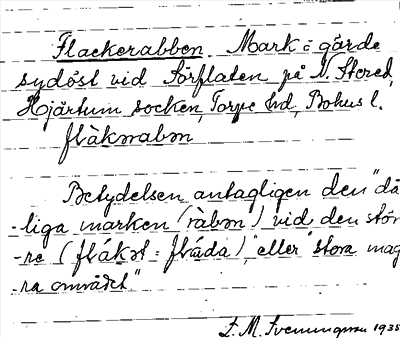 Flackerabben. Mark i gärde
sydöst vid Storflaten på N. Stered,
Hjärtum socken, Torpe hd, Bohus l.
flàkərabən
Betydelsen antagligen den "då-
-liga marken (ràbən) vid den stör-
-re (flákət = flåda)," eller "stora mag-
-ra området"
L. M. Svenungsson 1935